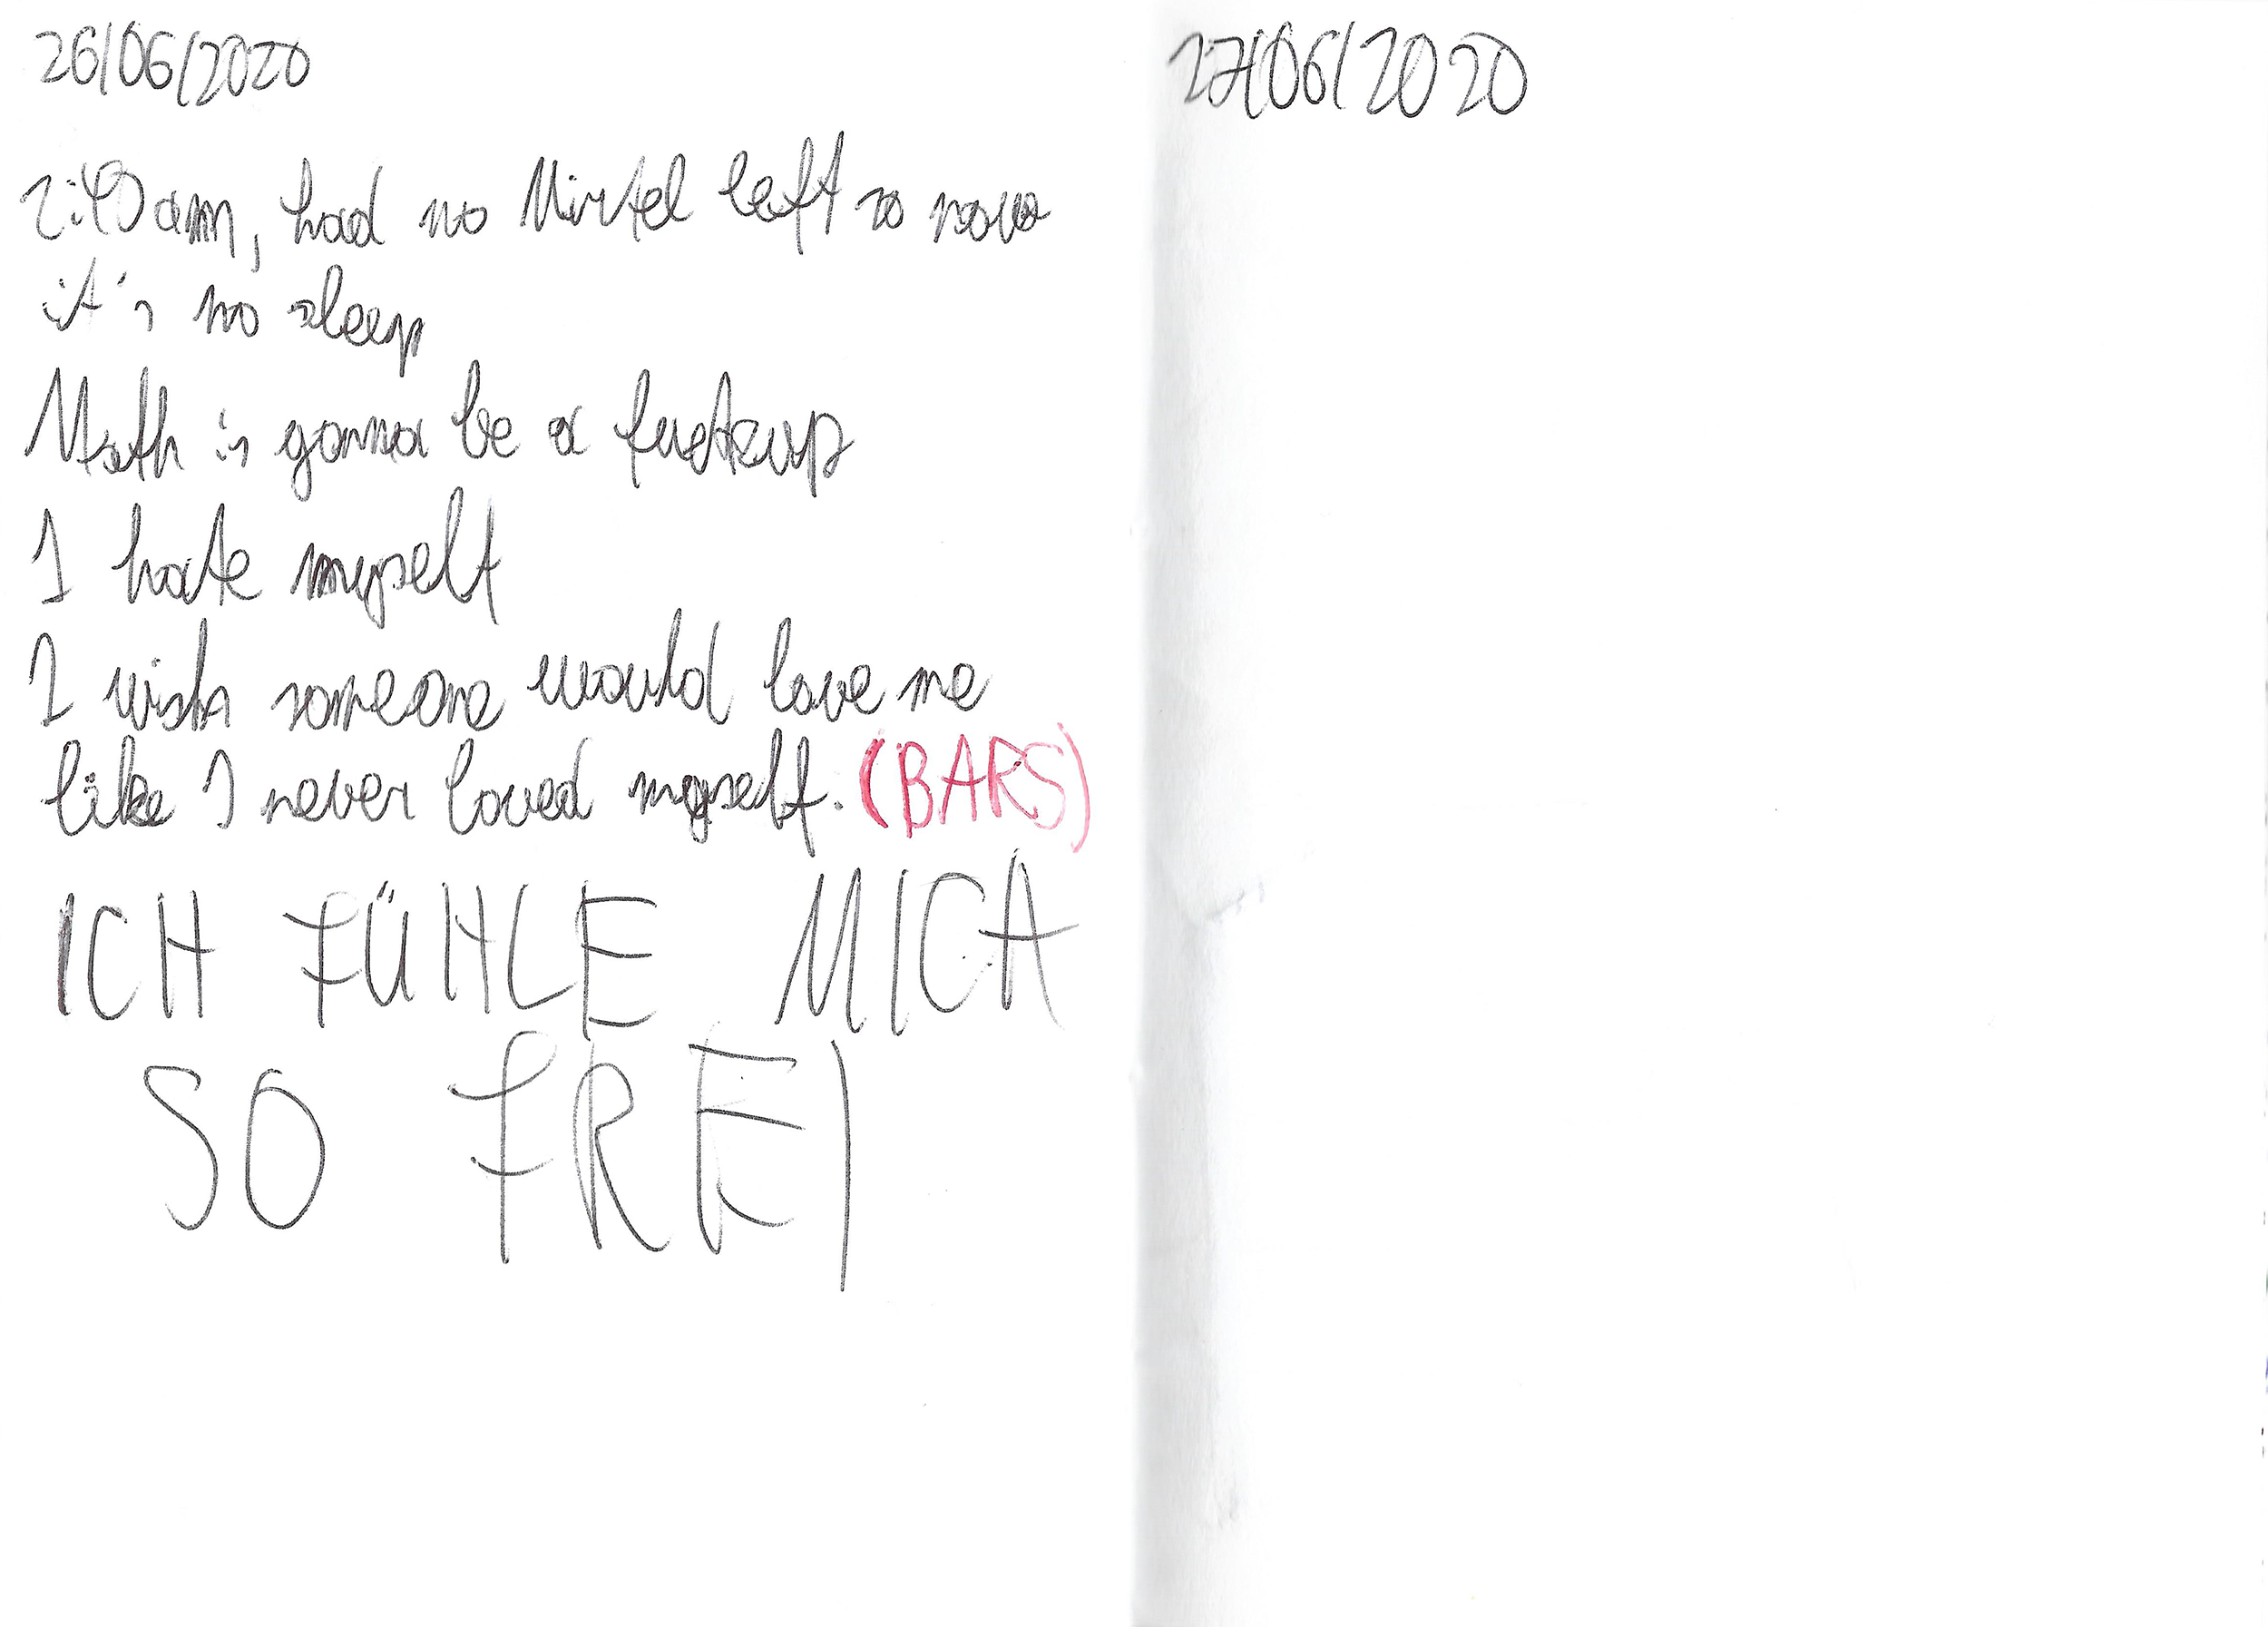 26/06/2020
2:40am, had no Mirtel left so now
it's no sleep
Math is gonna be a fuckup
I hate myself
I wish someone would love me
like I never loved myself. (BARS)
ICH FÜHLE MICH
SO FREI
27/06/2020